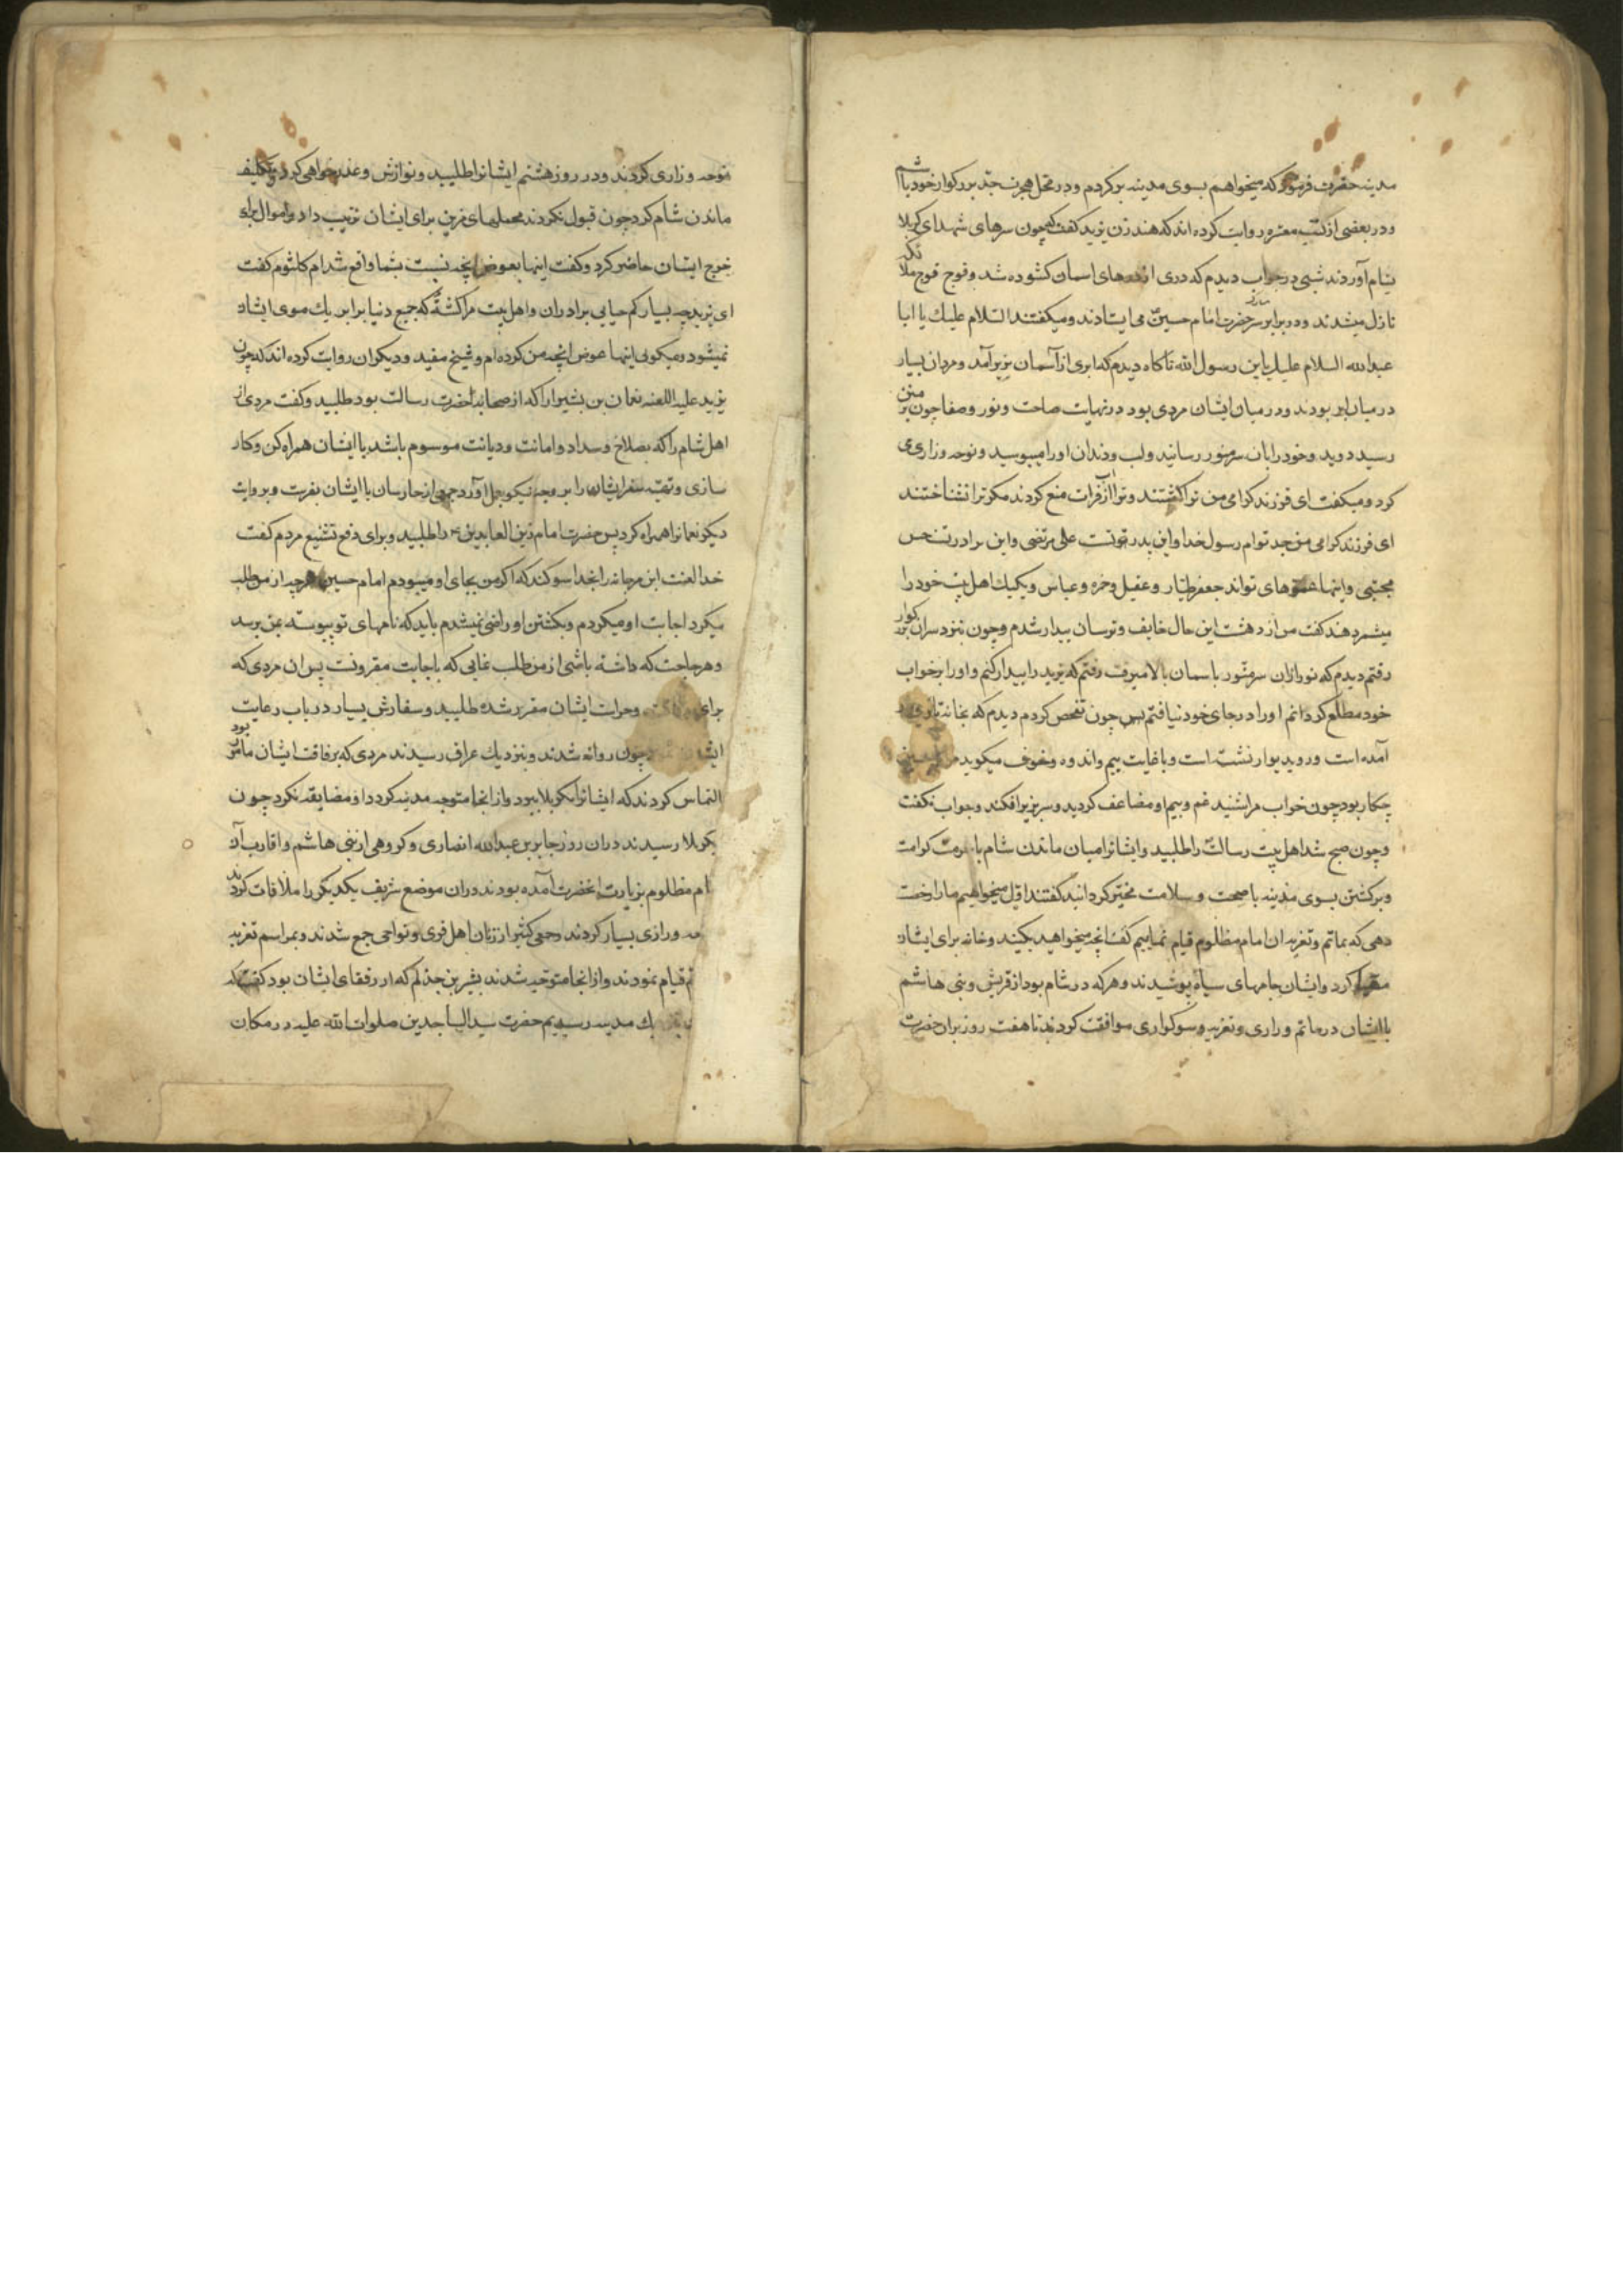 مدینه حضرت فرمود که میخواهم بسوی مدینه برکردم و در محل هجرت جد بزرکوار خود باشم
و در بعضی از کتب معتبره روایت کرده اند که هند زن یزید کفت که چون سرهای شهدای کربلا
بشام آوردند شبی در خواب دیدم که دری از درهای اسمان کشوده شد و فوج فوج ملائکه
نازل میشدند و در برابر سر منور حضرت امام حسین می ایستادند و میکفتند السلام علیك یا ابا
عبدالله السلام علیك یا بن رسول الله ناکاه دیدم که ابری از آسمان بزیر آمد و مردان بسیار
در میان ابر بودند و در میان ایشان مردی بود در نهایت صباحت و نور و صفا چون بزمین
رسید دوید و خود را بان سر منور رسانید و لب و دندان او را میبوسید و نوحه و زاری می
کرد و میکفت ای فرزند کرامی من ترا کشتند و ترا از آب فرات منع کردند مکر ترا نشناختند
ای فرزند کرامی من جد توام رسول خدا و این پدر تو است علی مرتضی و این برادر تست حسن
مجتبی و اینها عموهای تواند جعفر طیار و عقیل و حمزه و عباس و یکیك اهل بیت خود را
میشمرد هند کفت من از دهشت این حال خایف و ترسان بیدار شدم و چون بنزد سر ان بزرکوار
رفتم دیدم که نور ازان سر منور باسمان بالا میرفت رفتم که یزید را بیدار کنم و او را بر خواب
خود مطلع کردانم او را در جای خود نیافتم پس چون تفحص کردم دیدم که بخانه تاریکی
آمده است و رو بدیوار نشسته است و با غایت بیم و اندوه و خوف میکوید مرا با حسین
چکار بود چون خواب مرا شنید غم و بیم او مضاعف کردید و سر بزیر افکند و جواب نکفت
و چون صبح شد اهل بیت رسالت را طلبید و ایشانرا میان ماندن شام با حرمت و کرامت
و برکشتن بسوی مدینه با صحت و سلامت مخیر کردانید کفتند اول میخواهیم ما را رخصت
دهی که بماتم و تعزیه ان امام مظلوم قیام نماییم کفت انچه میخواهید بکنید و خانه برای ایشان
مقرر کرد و ایشان جامهای سیاه پوشیدند و هر که در شام بود از قریش و بنی هاشم
با ایشان در ماتم و زاری و تعزیه و سوکواری موافقت کردند تا هفت روز بران حضرت
نوحه و زاری کردند و در روز هشتم ایشانرا طلبید و نوازش و عذر خواهی کرد و تکلیف
ماندن شام کرد چون قبول نکردند محملهای مزین برای ایشان ترتیب داد و اموال برای
خرج ایشان حاضر کرد و کفت اینها بعوض انچه نسبت بشما واقع شد ام کلثوم کفت
ای یزید چه بسیار کم حیایی برادران و اهل بیت مرا کشتهٔ که جمیع دنیا برابر یك موی ایشان
نمیشود و میکویی اینها عوض انچه من کرده ام و شیخ مفید و دیکران روایت کرده اند که چون
یزید علیه اللعنه نعمان بن بشیر را که از صحابه انحضرت رسالت بود طلبید و کفت مردی از
اهل شام را که بصلاح و سداد و امانت و دیانت موسوم باشد با ایشان همراه کن و کار
سازی و تهیه سفر ایشان را بر وجه نیکو بعمل آورد جمعی از حارسان با ایشان بفرست و بروایت
دیکر نعمانرا همراه کرد پس حضرت امام زین العابدین ع را طلبید و برای دفع تشنیع مردم کفت
خدا لعنت ابن مرجانه را بخدا سوکند که اکر من بجای او میبودم امام حسین هرچه از من طلب
میکرد اجابت او میکردم و بکشتن او راضی نمیشدم باید که نامهای تو پیوسته بمن برسد
و هر حاجت که داشته باشی از من طلب نمایی که باجابت مقرونست پس ان مردی که
برای و حراست ایشان مقرر شده طلبید و سفارش بسیار در باب رعایت
چون روانه شدند و بنزدیك عراق رسیدند مردی که برفاقت ایشان مامور بود
التماس کردند که ایشانرا بکربلا ببرد و از انجا متوجه مدینه کردد او مضایقه نکرد چون
بکربلا رسیدند دران روز جابر بن عبدالله انصاری و کروهی از بنی هاشم و اقارب آن
ام مظلوم بزیارت انحضرت آمده بودند دران موضع شریف یکدیکر را ملاقات کردند
و زاری بسیار کردند و جمعی کثیر از زنان اهل قری و نواحی جمع شدند و بمراسم تعزیه
قیام نمودند و از انجا متوجه مدینه شدند بشیر بن جذلم که از رفقای ایشان بود کفت که
مدینه رسیدیم حضرت سید الساجدین صلوات الله علیه در مکان